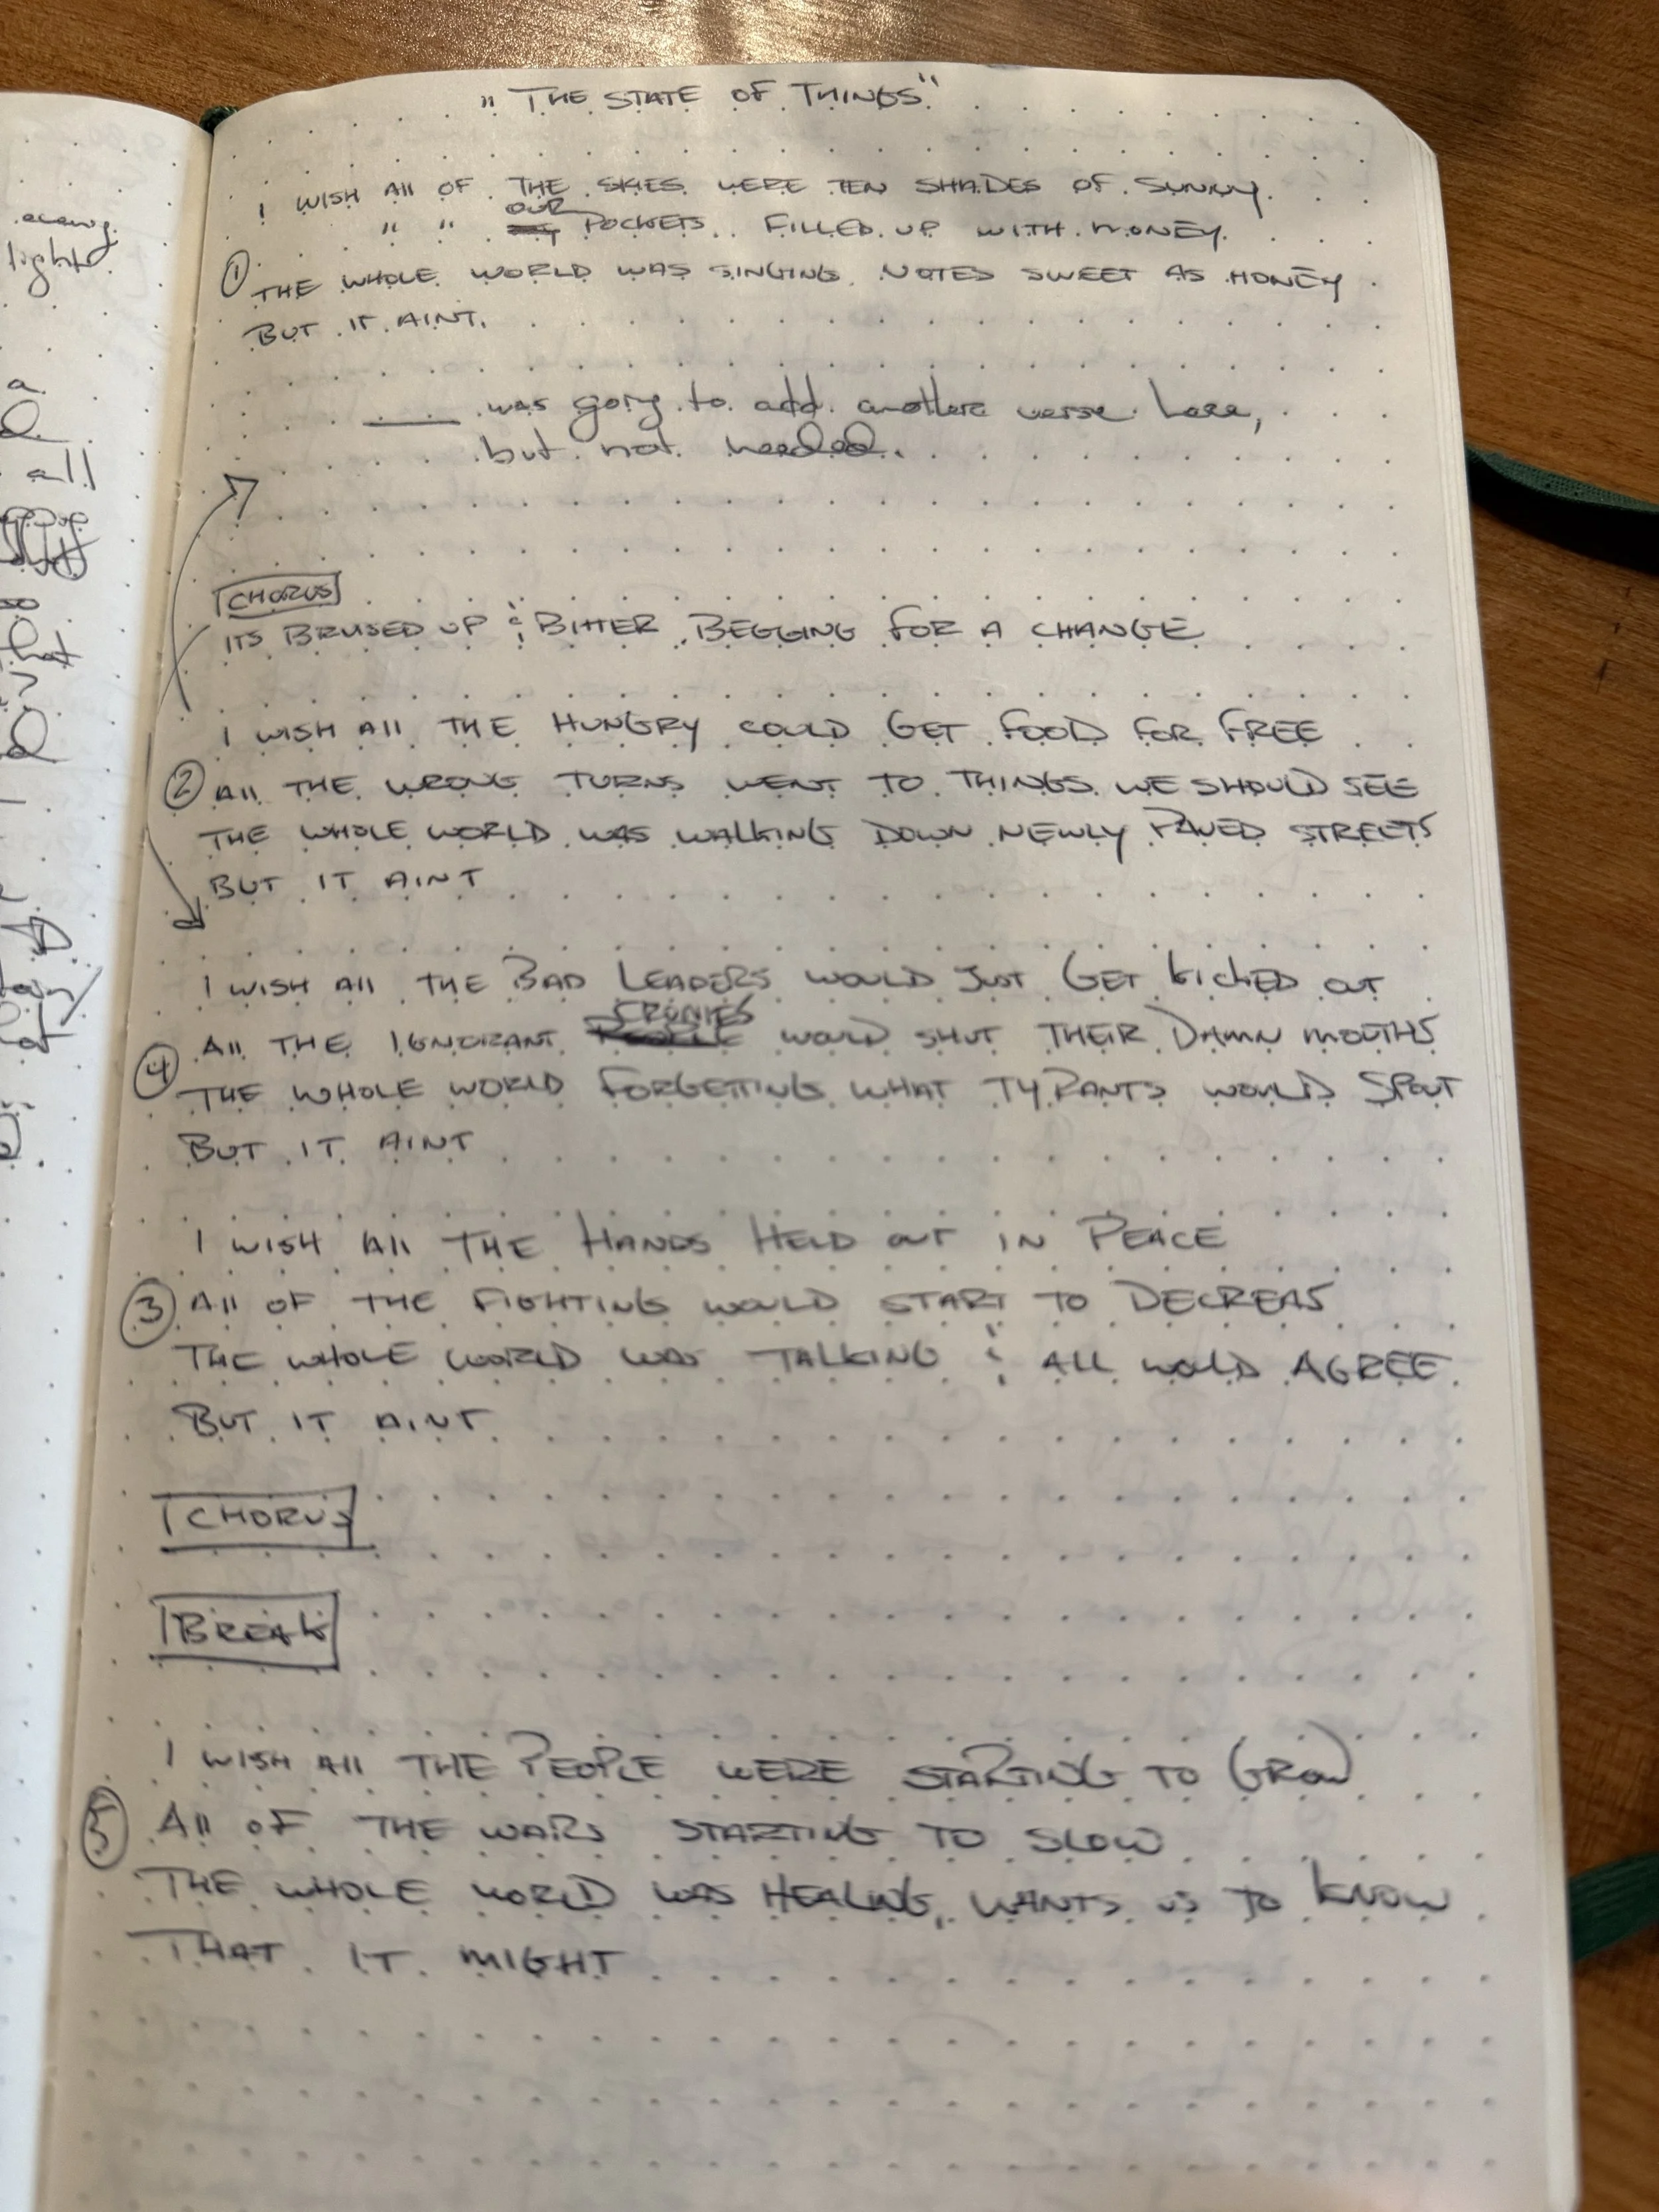 "THE STATE OF THINGS"
I WISH All OF THE SKIES WERE TEN SHADES OF SUNNY.
" " OUR POCKETS FILLED UP WITH MONEY.
① THE WHOLE WORLD WAS SINGING NOTES SWEET AS HONEY
BUT IT AINT.
was going to add another verse here,
but not needed.
CHORUS
ITS BRUSED UP & BITTER BEGGING FOR A CHANGE
I WISH All THE HUNGRY COULD GET FOOD FOR FREE
② All THE WRONG TURNS WENT TO THINGS WE SHOULD SEE
THE WHOLE WORLD WAS WALKING DOWN NEWLY PAVED STREETS
BUT IT AINT
I WISH All THE BAD LEADERS WOULD JUST GET KICKED OUT
④ All THE IGNORANT CRONIES WOULD SHUT THEIR DAMN MOUTHS
THE WHOLE WORLD FORGETTING WHAT TYRANTS WOULD SPOUT
BUT IT AINT
I WISH All THE HANDS HELD OUT IN PEACE
③ All OF THE FIGHTING WOULD START TO DECREAS
THE WHOLE WORLD WAS TALKING & ALL WOULD AGREE
BUT IT AINT
CHORUS
BREAK
I WISH All THE PEOPLE WERE STARTING TO GROW
⑤ All OF THE WARS STARTING TO SLOW
THE WHOLE WORLD WAS HEALING, WANTS US TO KNOW
THAT IT MIGHT
light
a
all
so
that
?